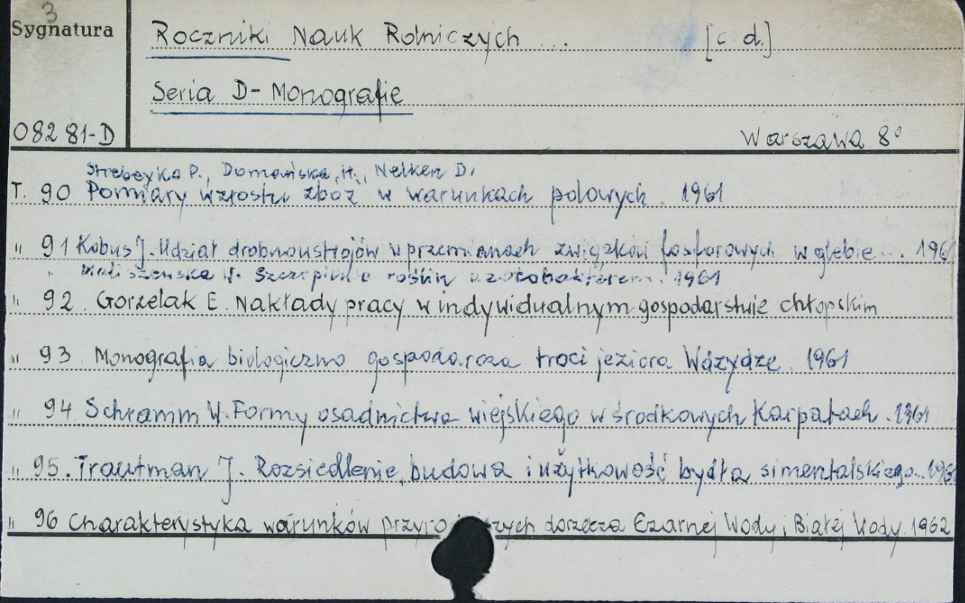 3
Sygnatura
Roczniki Nauk Rolniczych ... [c d.]
Seria D - Monografie
08281-D
Warszawa 8°
Strebeyko P., Domańska H., Nelken D.
T. 90 Pomiary wzrostu zbóż w warunkach polowych. 1961
" 91 Kobus J. Udział drobnoustrojów w przemianach związków fosforowych w glebie... 1961
" Szczepienie roślin azotobakterem. 1961
" 92. Gorzelak E. Nakłady pracy w indywidualnym gospodarstwie chłopskim
" 93 Monografia biologiczno gospodarcza troci jeziora Wdzydze. 1961
" 94 Schramm W. Formy osadnictwa wiejskiego w środkowych Karpatach. 1961
" 95. Trautman J. Rozsiedlenie, budowa i użytkowość bydła simentalskiego... 1961
" 96 Charakterystyka warunków przyro zych dorzecza Czarnej Wody i Białej Wody. 1962